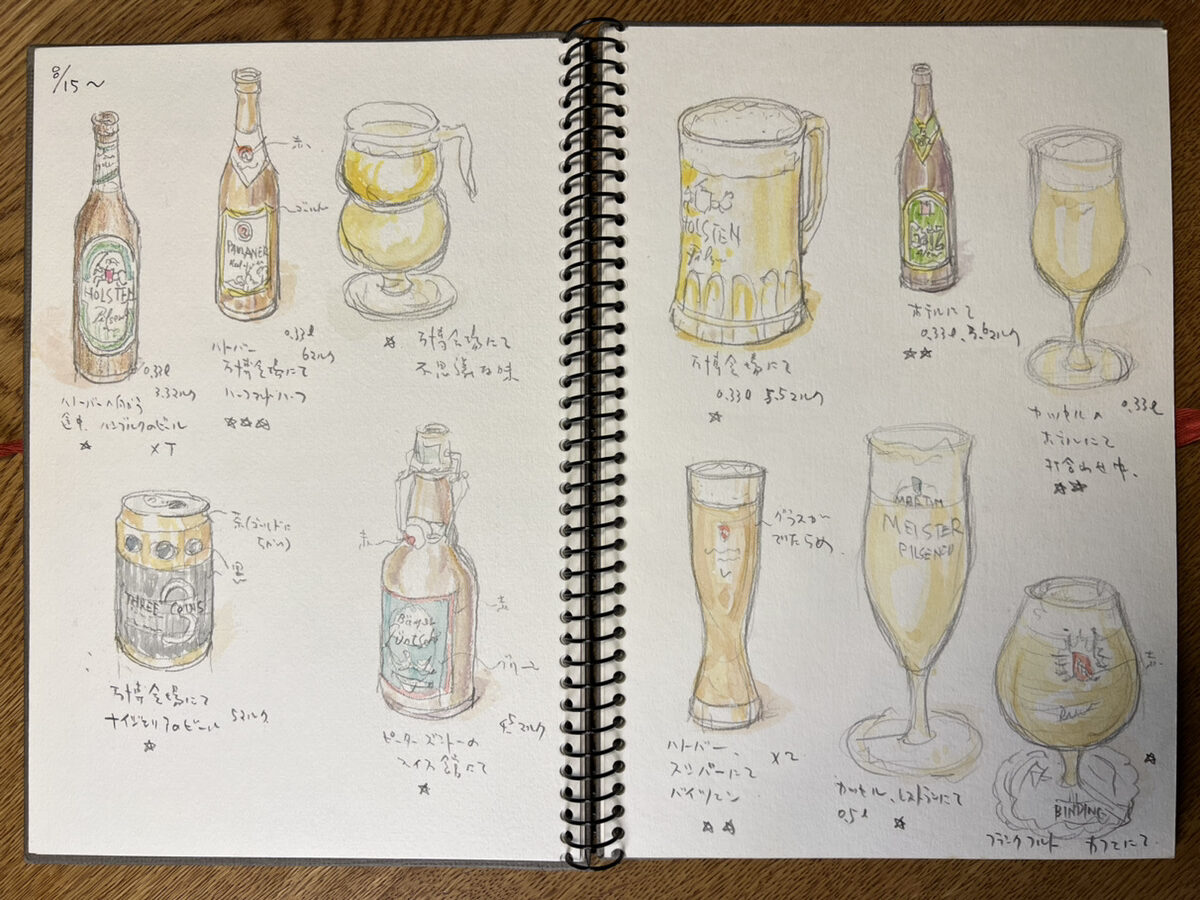 8/15〜
HOLSTEN
Pilsener
0.33l
3.3マルク
ハノーバーへ向かう
途中、ハンブルクのビール
☆
×T
赤、
ゴールド
PAULANER
0.33l
ハノーバー 6マルク
万博会場にて
ハーフアンドハーフ
☆☆☆
☆ 万博会場にて
不思議な味
茶(ゴールドに
ちかい)
黒
THREE COINS
3
万博会場にて
ナイジェリアのビール 5マルク
☆
赤
茶
グリーン
4.5マルク
ピーターズントーの
スイス館にて
☆
HOLSTEN
万博会場にて
0.33l 5.5マルク
☆
ホテルにて
0.33l、5.6マルク
☆☆
カッセルの 0.33l
ホテルにて
打合わせ中、
☆☆
グラスが
でたらめ
ハノーバー、 ×2
スリバーにて
バイツェン
☆☆
MARTIN
MEISTER
PILSENER
カッセル、レストランにて
0.5l ☆
赤
☆
BINDING
フランクフルト カフェにて